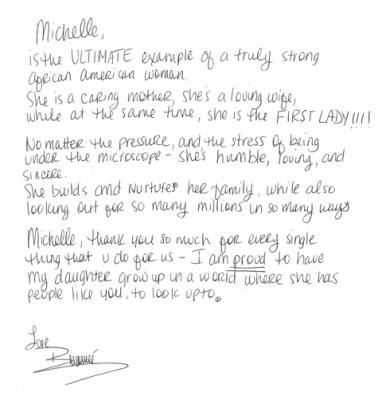 Michelle,
is the ULTIMATE example of a truly strong
african american woman.
She is a caring mother, she's a loving wife,
while at the same time, she is the FIRST LADY!!!!
No matter the pressure, and the stress of being
under the microscope - she's humble, loving, and
sincere.
She builds and nurtures her family, while also
looking out for so many millions in so many ways
Michelle, thank you so much for every single
thing that u do for us - I am proud to have
my daughter grow up in a world where she has
people like you, to look up to.
Love
Beyoncé